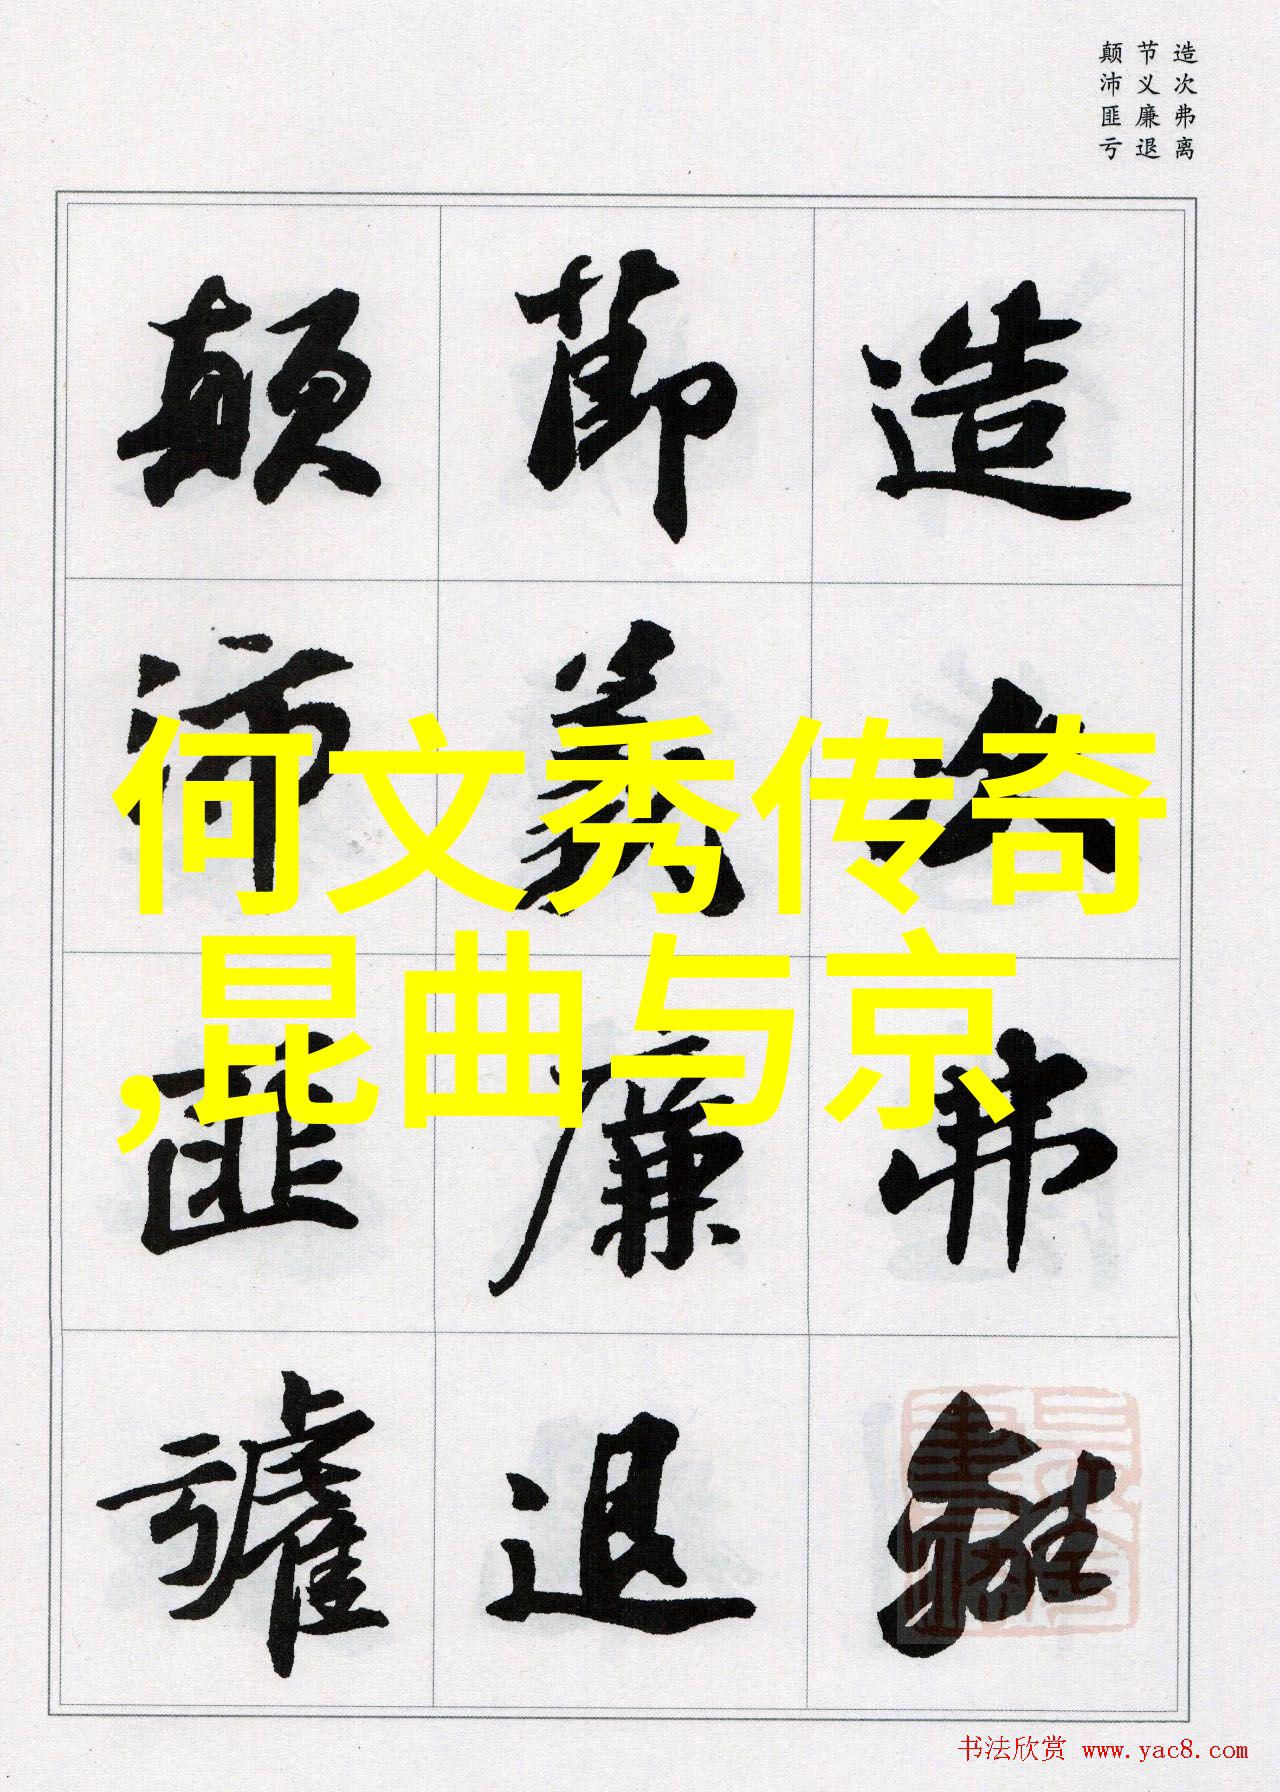 造次弗离
节义廉退
颠沛匪亏
造次弗離
節義廉退
顛沛匪虧
何文秀传奇
,昆曲与京
书法欣赏 www.yac8.com